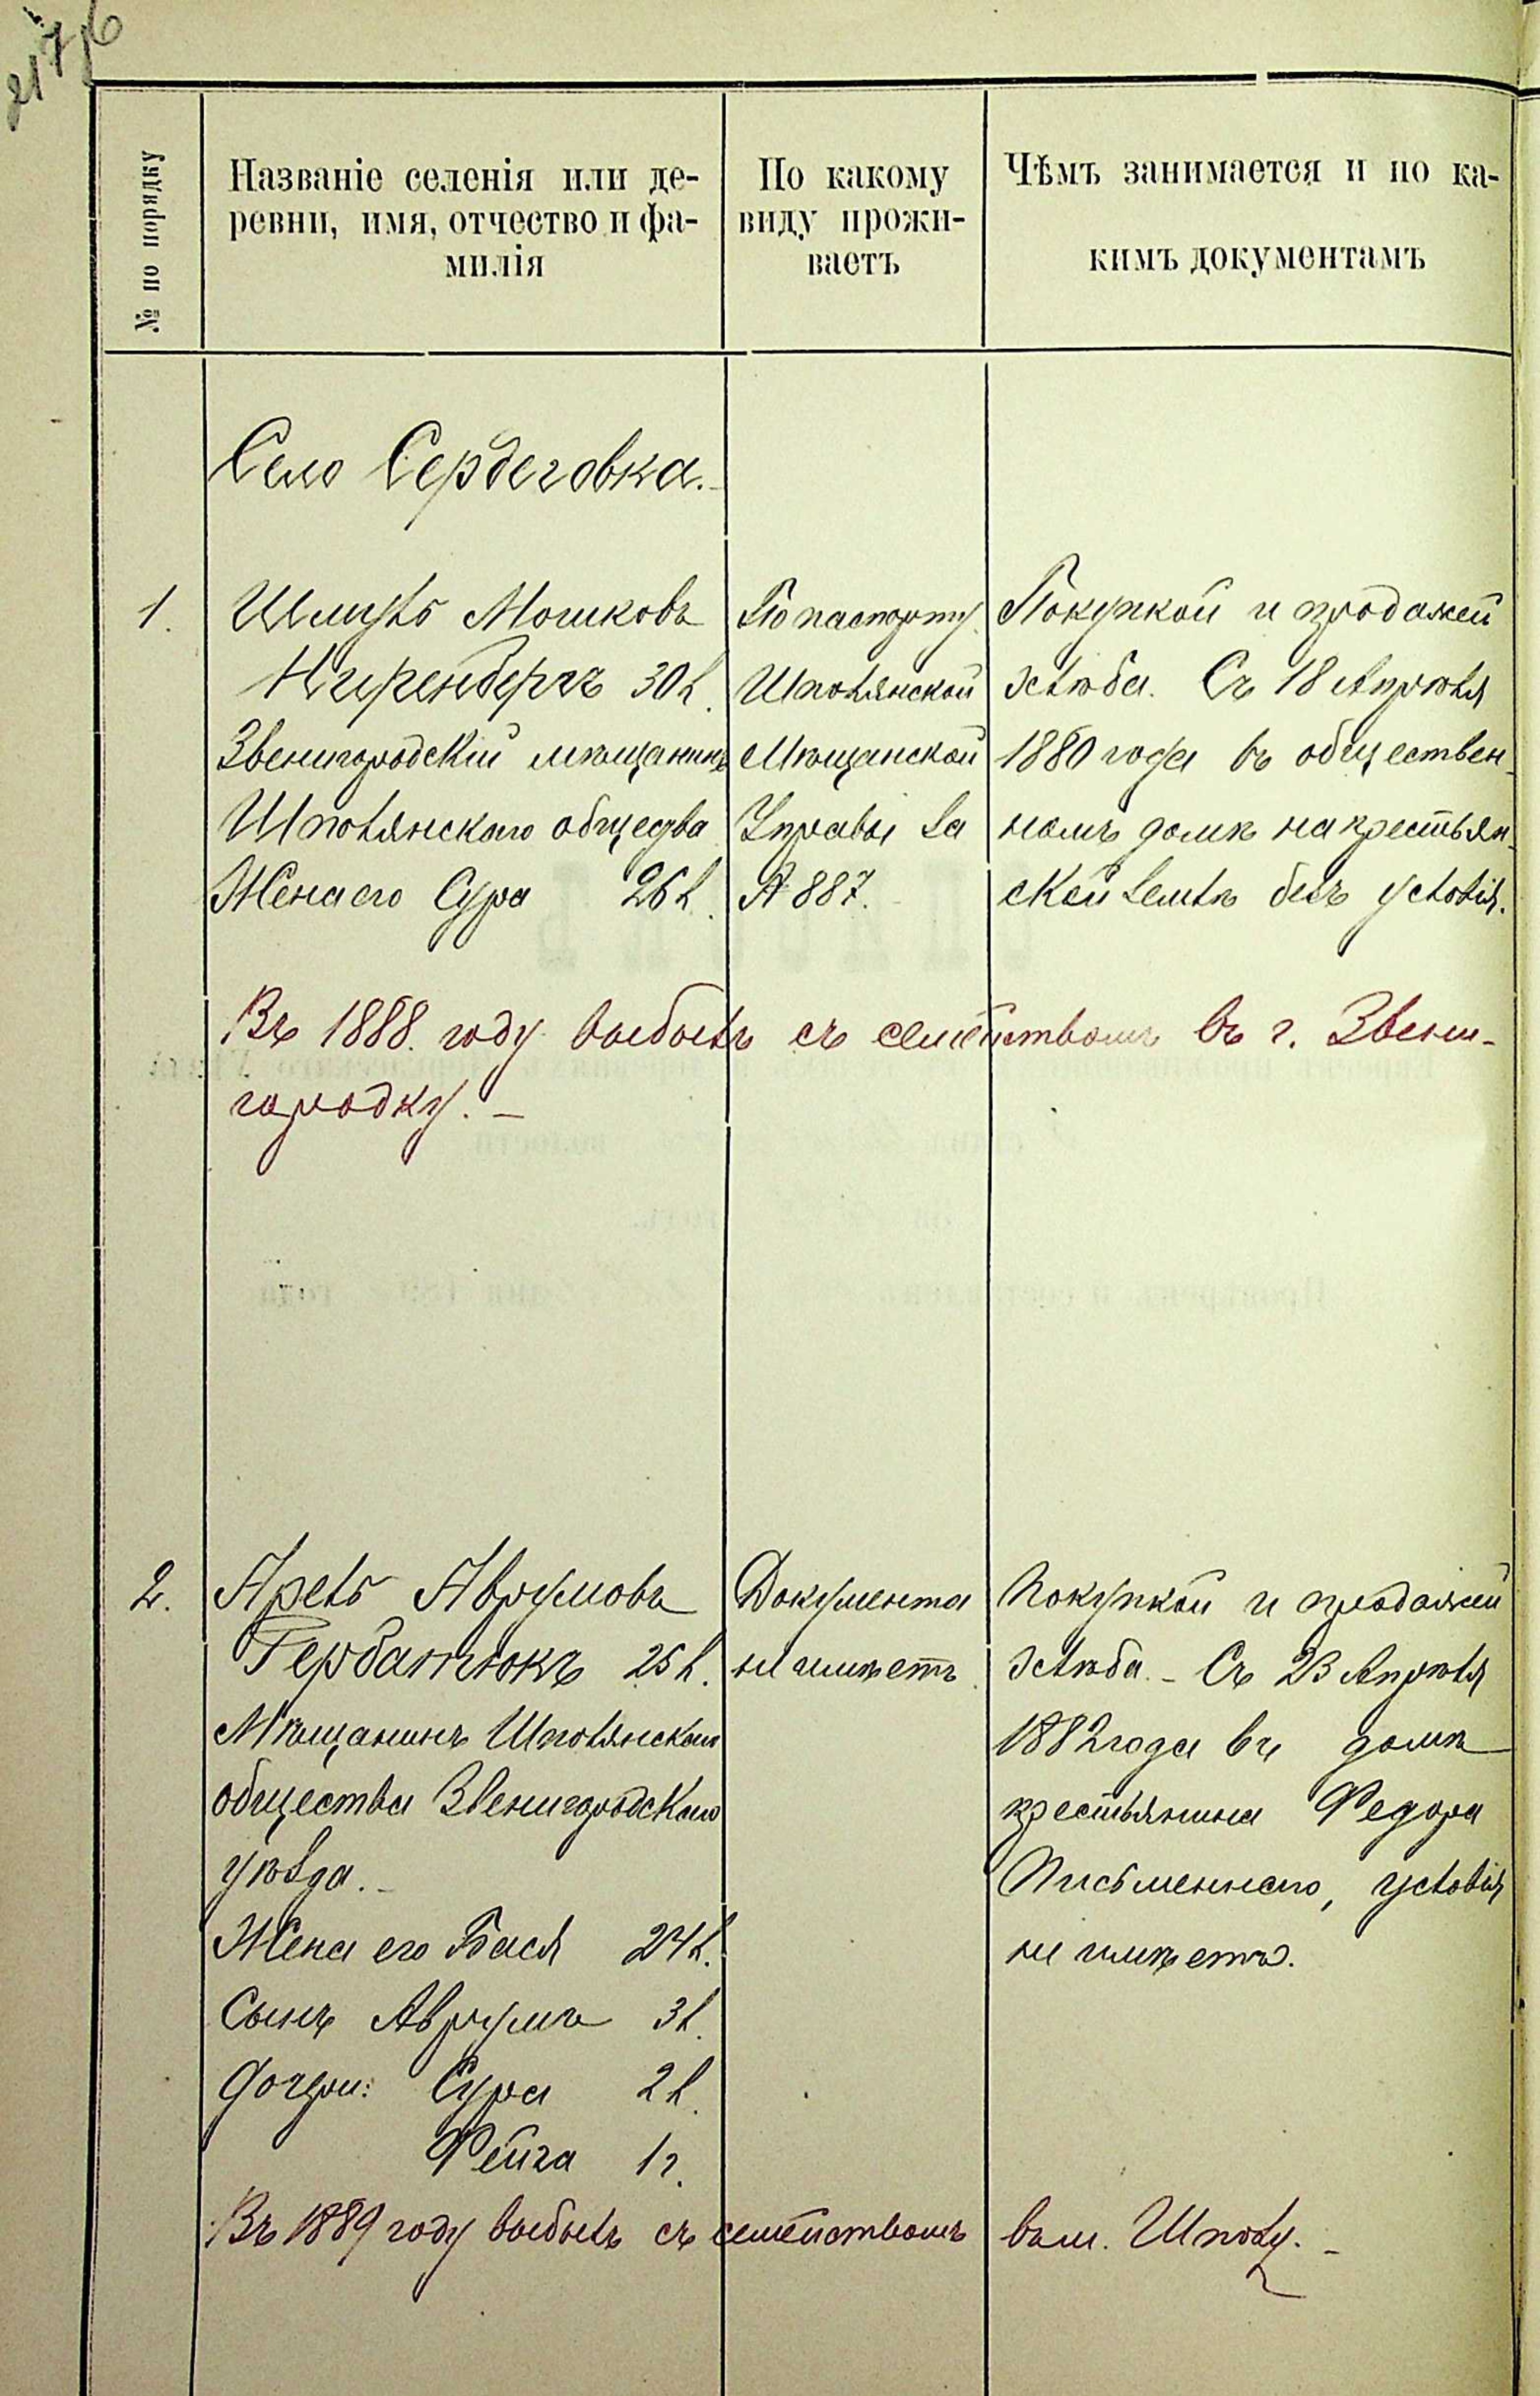 № по порядку
Названіе селенія или де-
ревни, имя, отчество и фа-
милія
По какому
виду прожи-
ваетъ
Чѣмъ занимается и по ка-
кимъ документамъ
Село Сердеговка.-
1.
Шмуль Мошковъ
Ниренбергъ 30 л.
Звенигородскій мѣщанинъ
Шполянскаго общества
Жена его Сура 26 л.
По паспорту
Шполянской
Мѣщанской
Управы за
№ 887.
Покупкой и продажей
хлѣба. Съ 18 Апрѣля
1880 года въ обществен-
номъ домѣ на крестьян-
ской землѣ безъ условія.
Въ 1888 году выбылъ съ семействомъ въ г. Звени-
городку. -
2.
Арель Аврумовъ
Гербатюкъ 25 л.
Мѣщанинъ Шполянскаго
общества Звенигородскаго
уѣзда. -
Жена его Бася 24 л.
Сынъ Аврумъ 3 л.
Дочери: Сура 2 л.
Фейга 1 г.
Документа
не имѣетъ
Покупкой и продажей
хлѣба. - Съ 23 Апрѣля
1882 года въ домѣ
крестьянина Федора
Письменнаго, условія
не имѣетъ.
Въ 1889 году выбылъ съ семействомъ въ м. Шполу. -